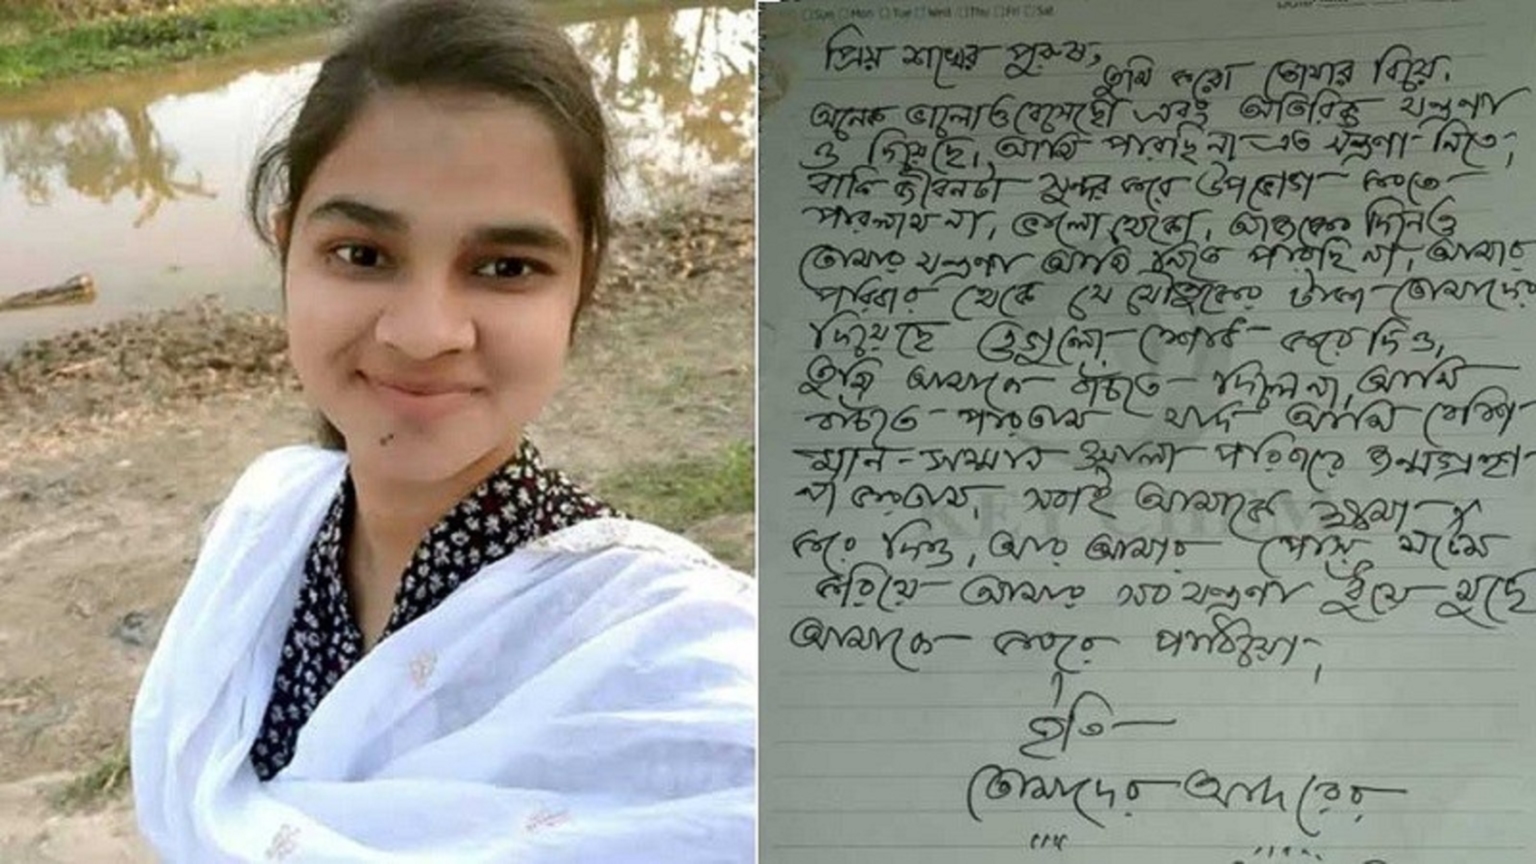 □Sun □Mon □Tue □Wed □Thu □Fri □Sat
প্রিয় শখের পুরুষ,
তুমি করো তোমার বিয়ে,
অনেক ভালোও বেসেছো এবং অতিরিক্ত যন্ত্রণা
ও দিয়েছো, আমি পারছি না এত যন্ত্রণা নিতে,
বাকি জীবনটা সুন্দর করে উপভোগ করতে
পারলাম না, ভালো থেকো, আজকের দিনও
তোমার যন্ত্রণা আমি নিতে পারছি না, আমার
পরিবার থেকে যে যৌতুকের টাকা তোমাদের
দিয়েছে ওগুলো শোধ করে দিও,
তুমি আমাকে বাঁচতে দিলে না, আমি
বাঁচতে পারতাম যদি আমি বেশি
মান-সম্মান ওয়ালা পরিবারে জন্মগ্রহণ
না করতাম, সবাই আমাকে ক্ষমা
করে দিও, আর আমার পোস্ট মর্টেম
করিয়ে আমার সব যন্ত্রণা ধুয়ে মুছে
আমাকে কবরে পাঠাইয়া,
ইতি
তোমাদের আদরের